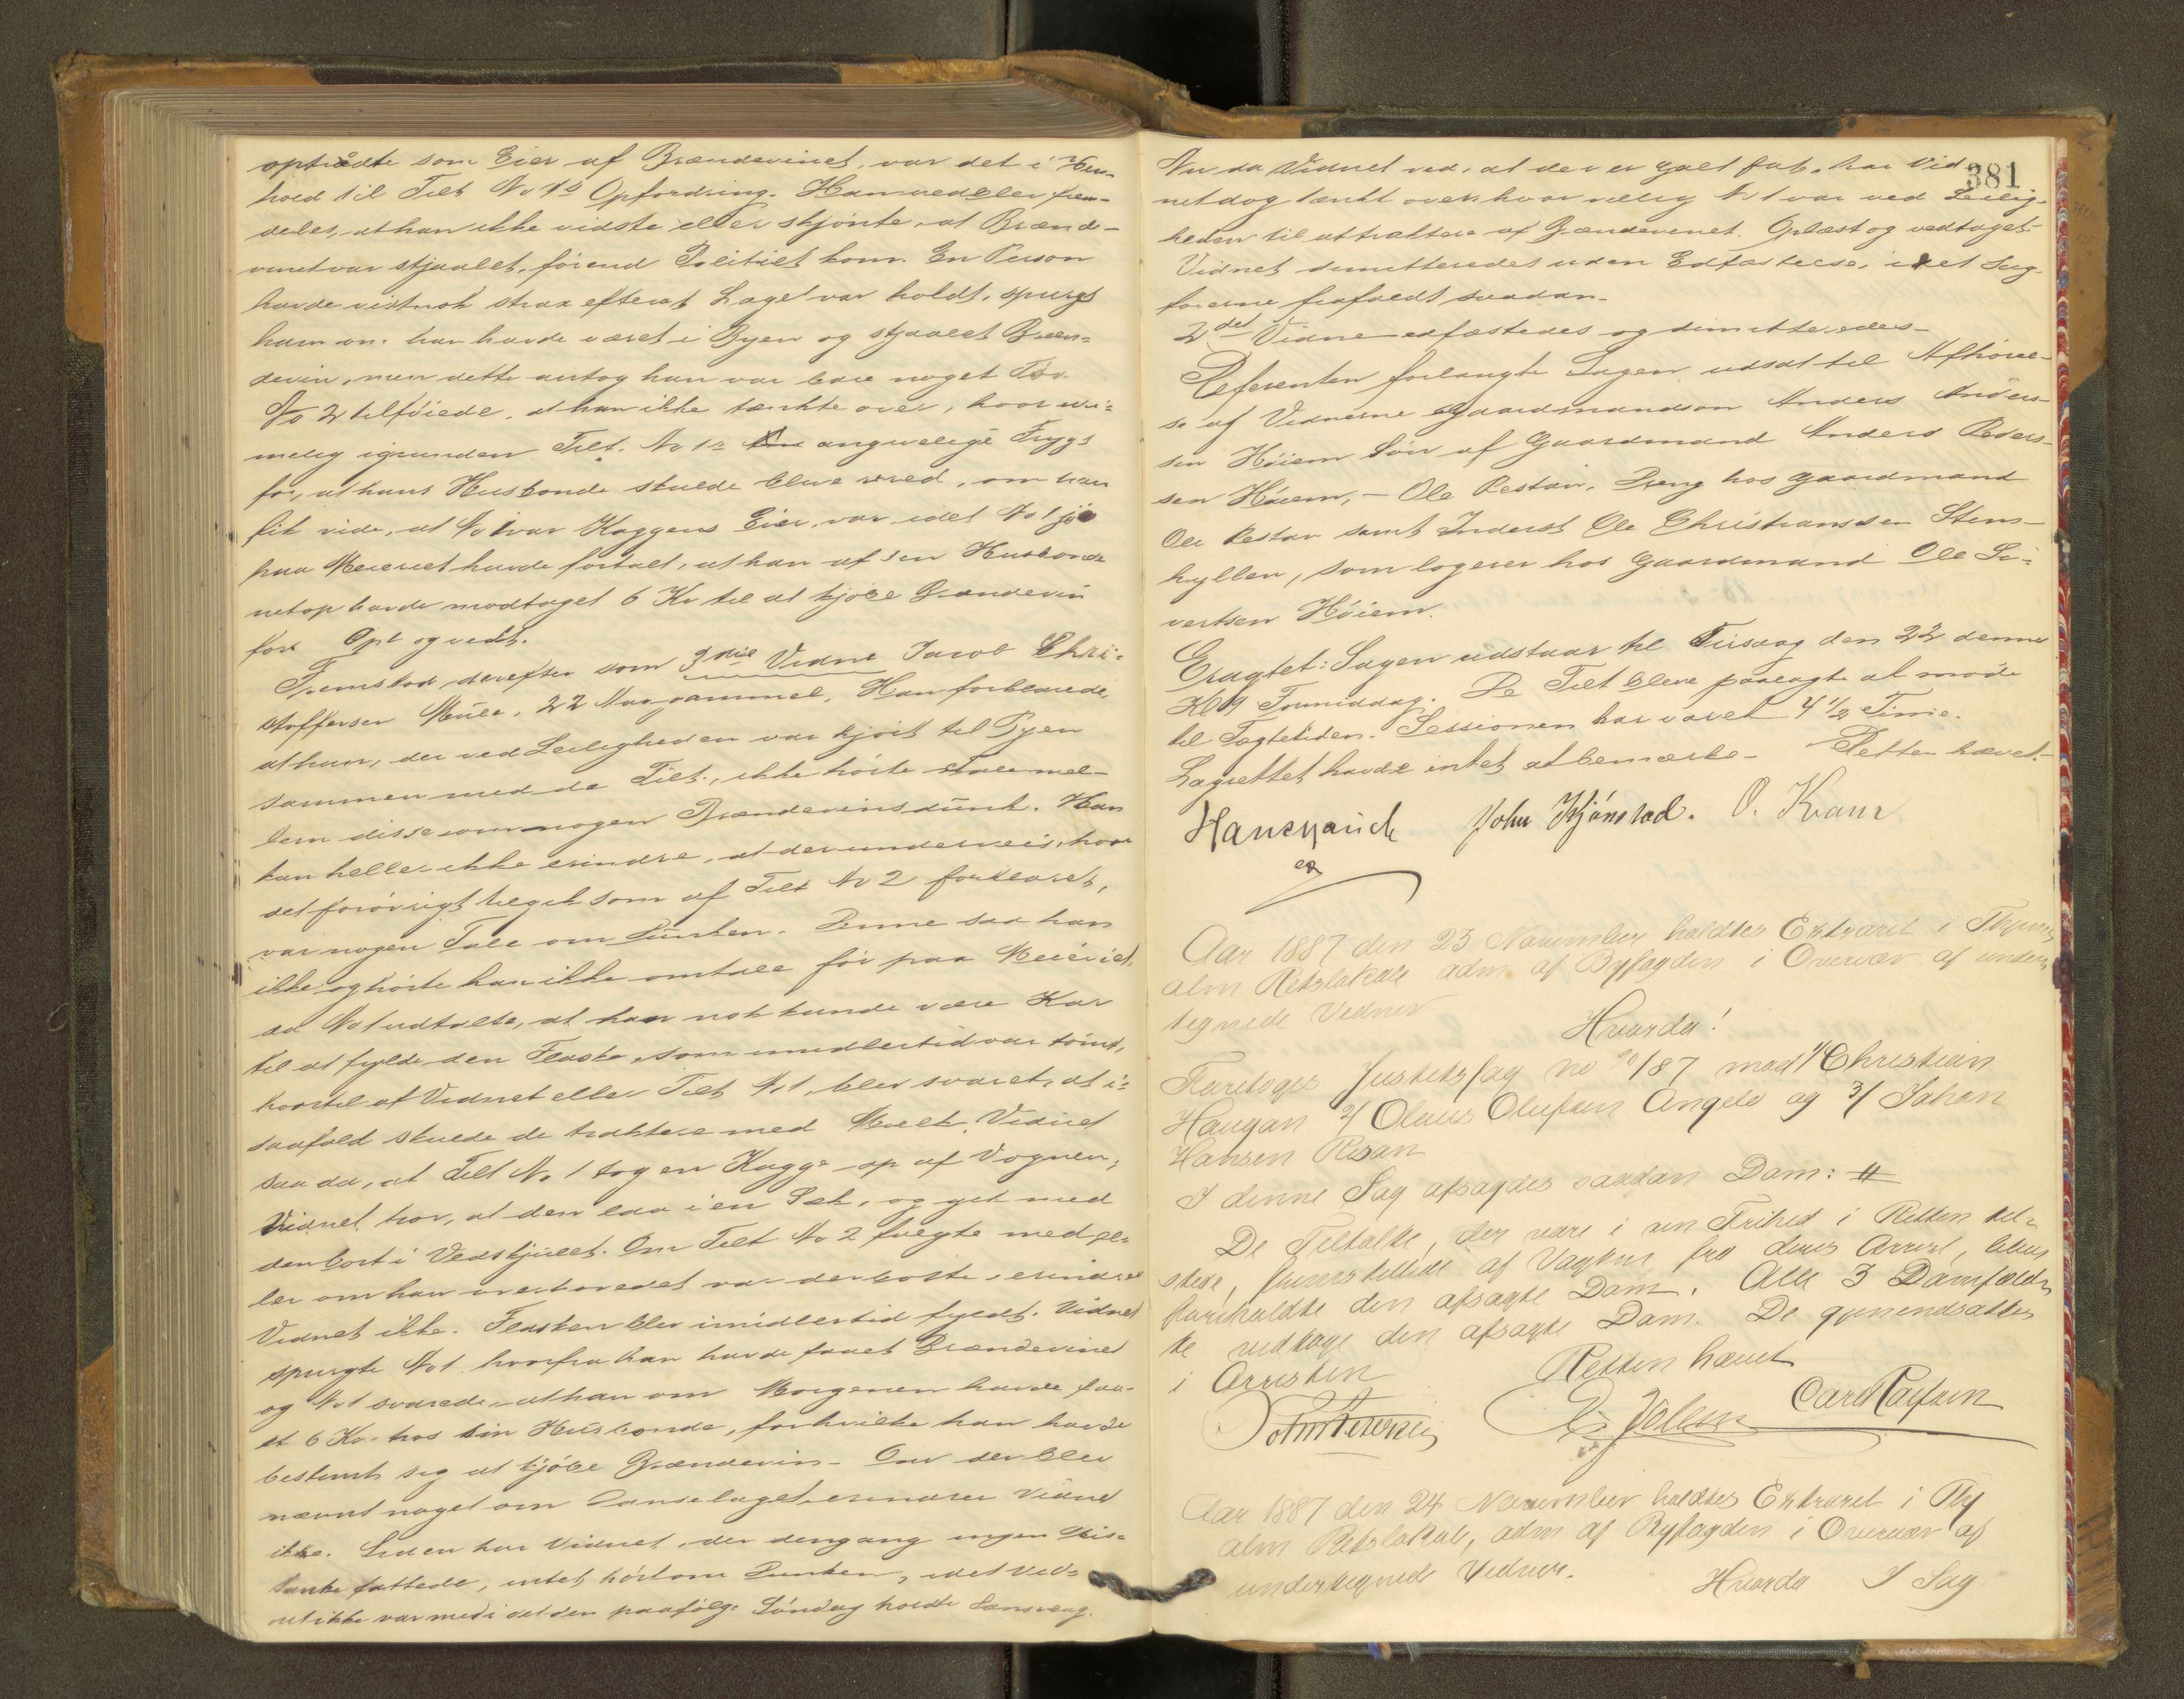 optrådte som Eier af Brændevinet, var det i Hen-
hold til Tilt No 1s Opfordring. Han nedeler frem-
deles, at han ikke vidste eller skjönte, at Brænde-
vinet var stjaalet, förend Politiet kom. En Person
havde vistnok strax efterat Laget var holdt, spurgt
ham om han havde været i Byen og stjaalet Bræn-
devin, men dette antog han var bare noget Töv.
No 2 tilföiede, at han ikke tænkte over, hvor uri-
melig igrunden Tilt. No 1s angivelige Frygt
for, at hans Husbonde skulde blive vred, om han
fik vide, at No 1 var Kaggens Eier, var idet No 1 jo
paa Meieriet havde fortalt, at han af sin Husbonde
netop havde modtaget 6 Kr til at kjöbe Brændevin
for. Opl og vedt.
Fremstod derefter som 3die Vidne Jacob Chri-
stoffersen Mule, 22 Aar gammel. Han forklarede,
at han, der ved Leiligheden var kjört til Byen
sammen med de Tilt., ikke hörte Tale mel-
lem disse om nogen Brændevinsdunk. Han
kan heller ikke erindre, at der underveis, hvor
det forövrigt tilgik som af Tilt No 2 forklaret,
var nogen Tale om Dunken. Denne saa han
ikke og hörte han ikke omtale för paa Meieriet,
da No 1 udtalte, at han nok kunde være Kar
til at fylde den Flaske, som imidlertid var tömt,
hvortil af Vidnet eller Tilt No 1, blev svaret, at i
saafald skulde de traktere med Melk. Vidnet
saa da, at Tilt No. 1 tog en Kagge op af Vognen,
Vidnet tror, at den laa i en Sæk, og gik med
den bort i Vedskjulet. Om Tilt No 2 fulgte med el-
ler om han overhovedet var derborte, erindrer
Vidnet ikke. Flasken blev imidlertid fyldt. Vidnet
spurgte No 1 hvorfra han havde faaet Brændevinet
og No 1 svarede, at han om Morgenen havde faa-
et 6 Kr. hos sin Husbonde, for hvilke han havde
bestemt sig at kjöbe Brændevin. Om der blev
nævnt noget om Danselaget erindrer Vidnet
ikke. Siden har Vidnet, der dengang ingen Mis-
tanke fattede, intet hört om Dunken, idet Vid-
net ikke var med i det den paafölg. Söndag holdte Danselag.
381
Nu da Vidnet ved, at der er galt fat, har Vid-
net dog tænkt over, hvor villig No 1 var ved Leilig-
heden til at traktere af Brændevinet. Oplæst og vedtaget.
Vidnet demitteredes uden Edfæstelse, idet Sag-
förerne frafaldt saadan.
2det Vidne edfæstedes og demitteredes.
Referenten forlangte Sagen udsat til Afhörel-
se af Vidnerne Gaardmandsön Anders Anders-
sen Höiem Sön af Gaardmand Anders Peders-
sen Höiem, - Ole Restan, Dreng hos Gaardmand
Ole Restan samt Inderst Ole Christianssen Stens-
hyllen, som logerer hos Gaardmand Ole Si-
vertsen Höiem.
Eragtet: Sagen udstaar til Tirsdag den 22 dennes
Kl 4 Formiddag. De Tilt bleve paalagte at möde
til Tægtetiden. Sessionen har varet 4 1/2 Time.
Lagrettet havde intet at bemærke. Retten hævet.
John Kjönstad. O. Kran
Aar 1887 den 23 November holdtes Extraret i Thjems
alm Retslokale adm af Byfogden i Overvær af under-
tegnede Vidner
Hvorda!
Foretoges Justitssag no 90/87 mod 1/ Christian
Haugan 2/ Olaus Olufsen Angelo og 3/ Johan
Hansen Risan
I denne Sag afsagdes saadan Dom: #
De Tiltalte, der vare i sin Frihed i Retten til-
stede, fremstillede af Vagten fra deres Arrest, bleve
foreholdte den afsagte Dom. Alle 3 Domfæld-
te vedtoge den afsagte Dom. De gjenindsattes
i Arresten Retten hævet
Aar 1887 den 24 November holdtes Extraret i Thj
alm Retslokale, adm af Byfogden i Overvær af
undertegnede Vidner. Hvorda I Sag